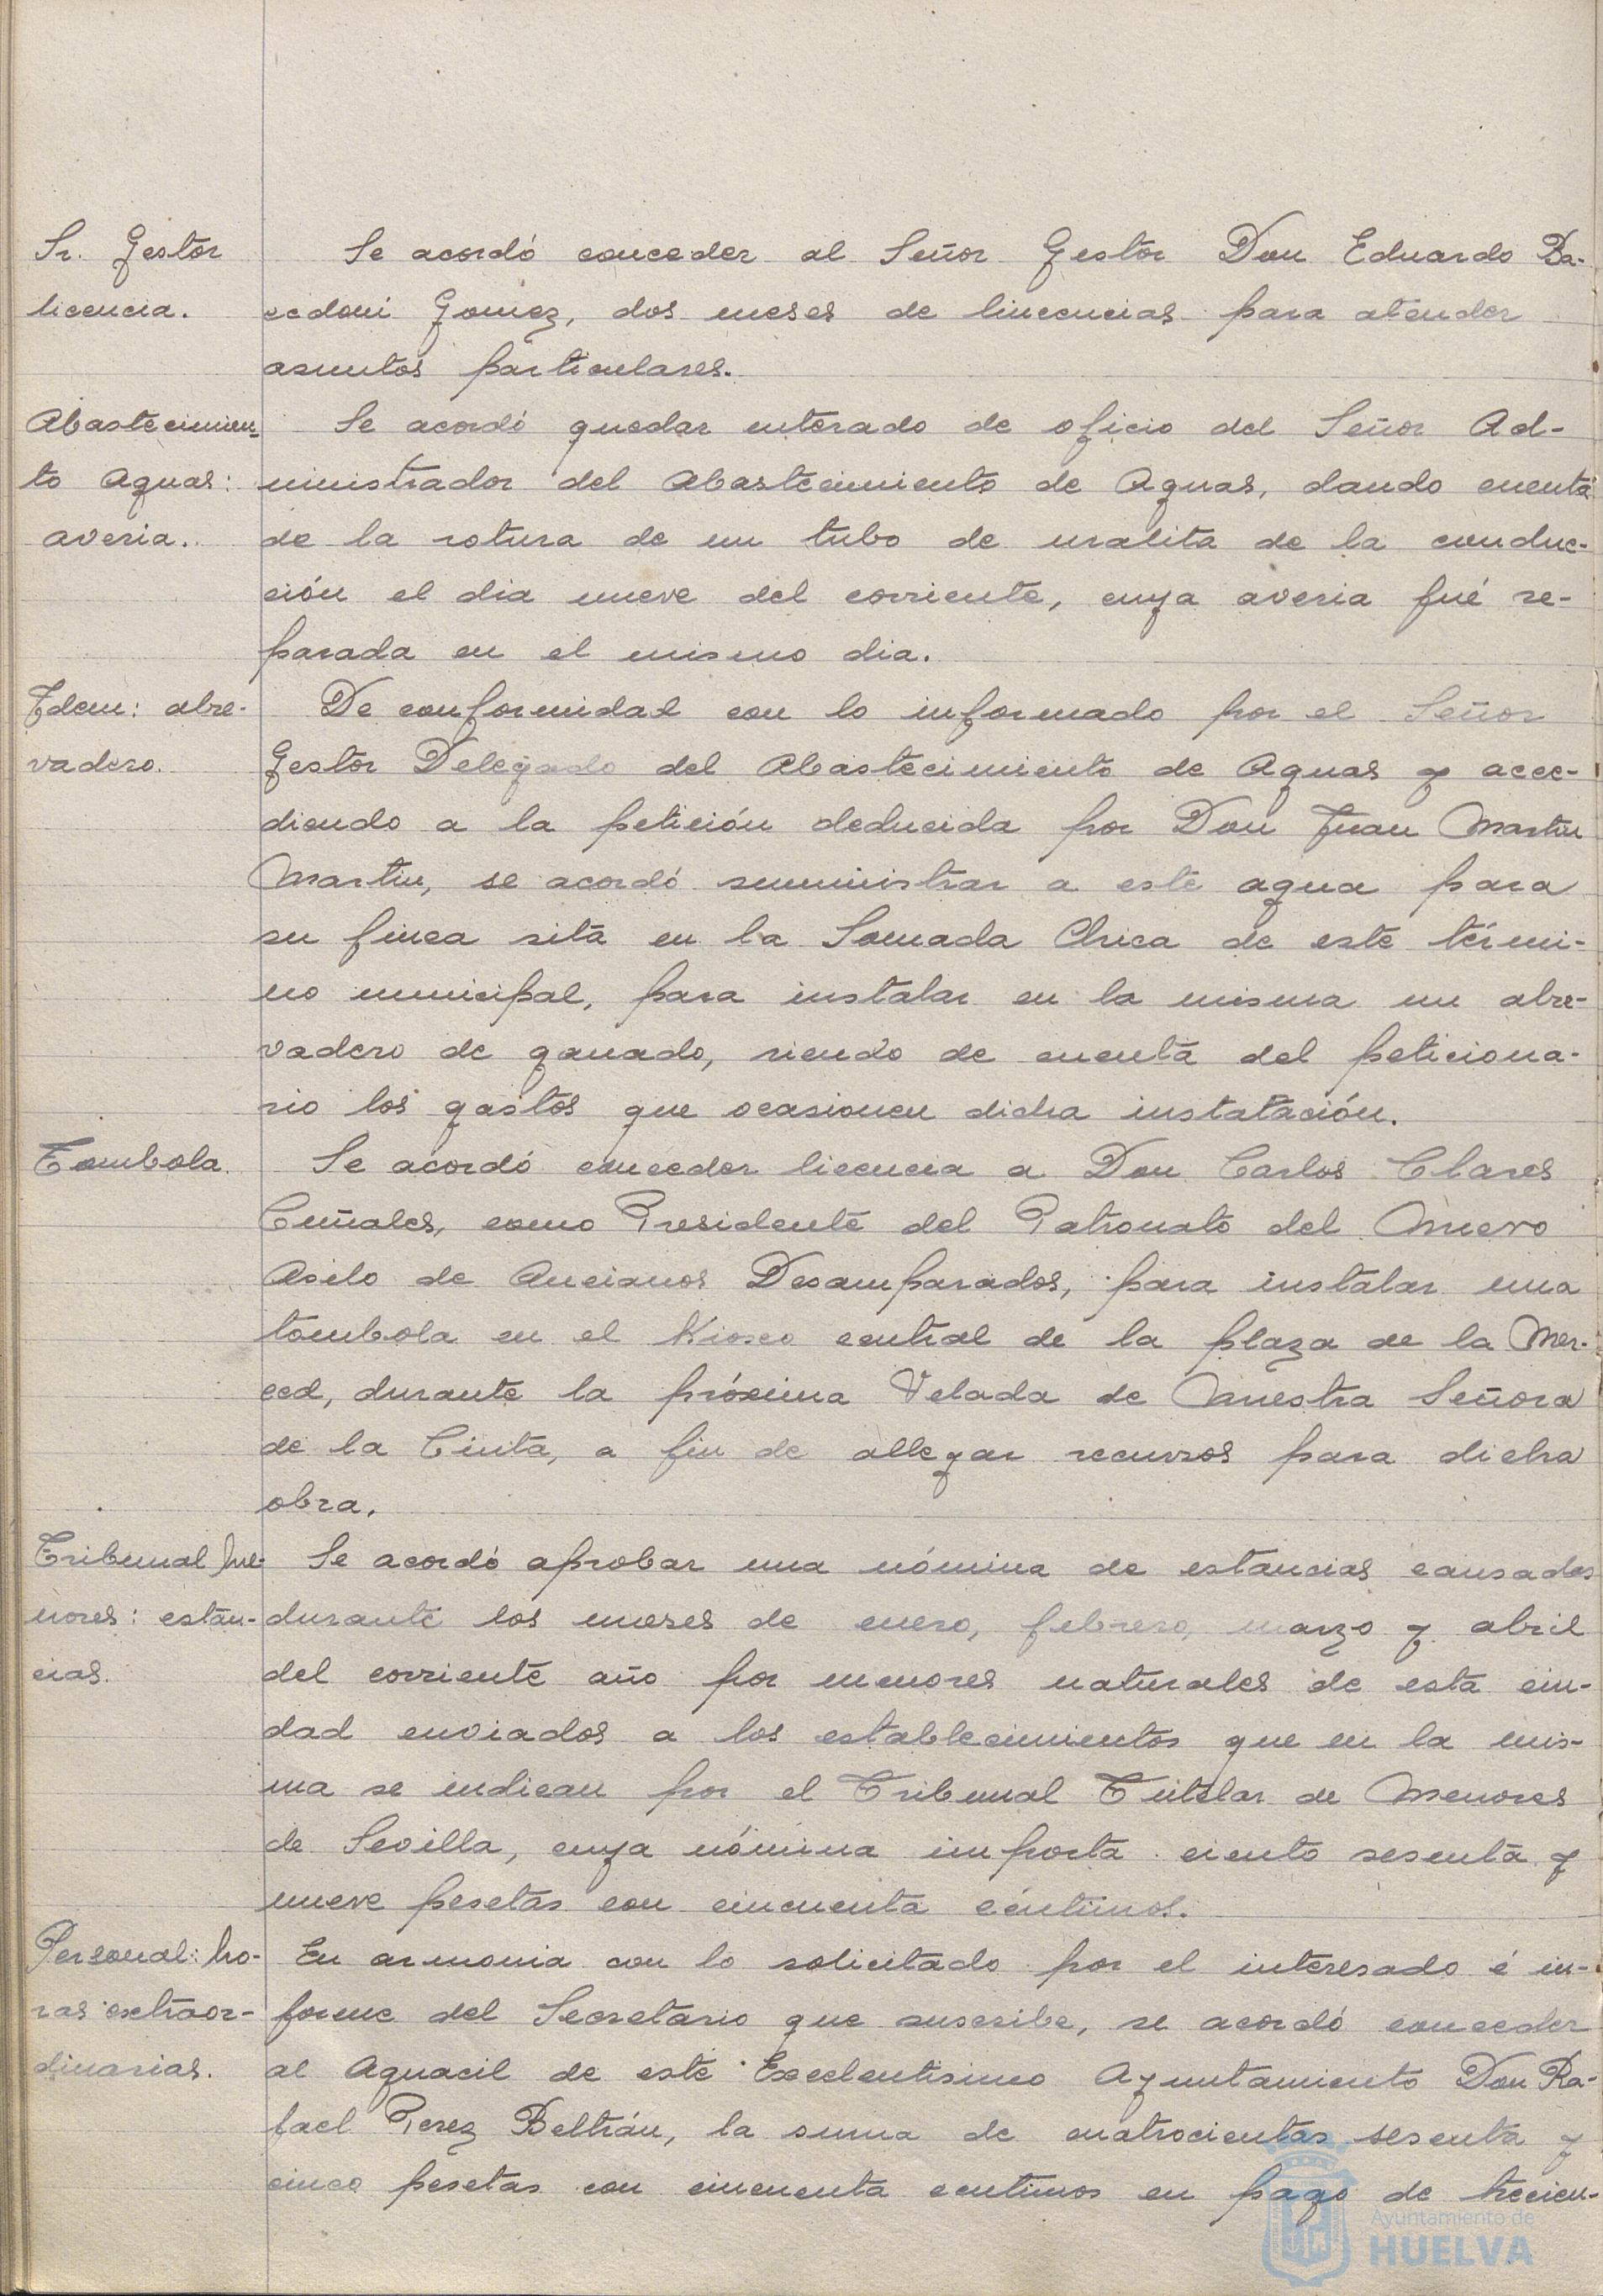 Sr. Gestor
licencia.
Se acordó conceder al Señor Gestor Don Eduardo Ba-
ccdoni Gomez, dos meses de lincencias para atender
asuntos particulares.
Abastecimien-
to Aguas:
averia.
Se acordó quedar enterado de oficio del Señor Ad-
ministrador del Abastecimiento de Aguas, dando cuenta
de la rotura de un tubo de uralita de la conduc-
ción el dia nueve del corriente, cuya averia fué re-
parada en el mismo dia.
Idem: abre-
vadero.
De conformidad con lo informado por el Señor
Gestor Delegado del Abastecimiento de Aguas y acce-
diendo a la petición deducida por Don Juan Martin
Martin, se acordó suministrar a este agua para
su finca sita en la Jomada Chica de este térmi-
no municipal, para instalar en la misma un abre-
vadero de ganado, siendo de cuenta del peticiona-
rio los gastos que ocasionen dicha instatación.
Tombola.
Se acordó conceder licencia a Don Carlos Clares
Cuñales, como Presidente del Patronato del Nuevo
Asilo de Ancianos Desamparados, para instalar una
tómbola en el Kiosco central de la plaza de la Mer-
ced, durante la próxima Velada de Nuestra Señora
de la Cinta, a fin de allegar recursos para dicha
obra.
Tribunal Me-
nores: estan-
cias.
Se acordó aprobar una nómina de estancias causadas
durante los meses de enero, febrero, marzo y abril
del corriente año por menores naturales de esta ciu-
dad enviados a los establecimientos que en la mis-
ma se indican por el Tribunal Tutelar de Menores
de Sevilla, cuya nómina importa ciento sesenta y
nueve pesetas con cincuenta céntimos.
Personal: ho-
ras extraor-
dinarias.
En armonia con lo solicitado por el interesado é in-
forme del Secretario que suscribe, se acordó conceder
al Aguacil de este Excelentisimo Ayuntamiento Don Ra-
fael Perez Beltrán, la suma de cuatrocientas sesenta y
cinco pesetas con cincuenta centimos en pago de trecien-
Ayuntamiento de
HUELVA